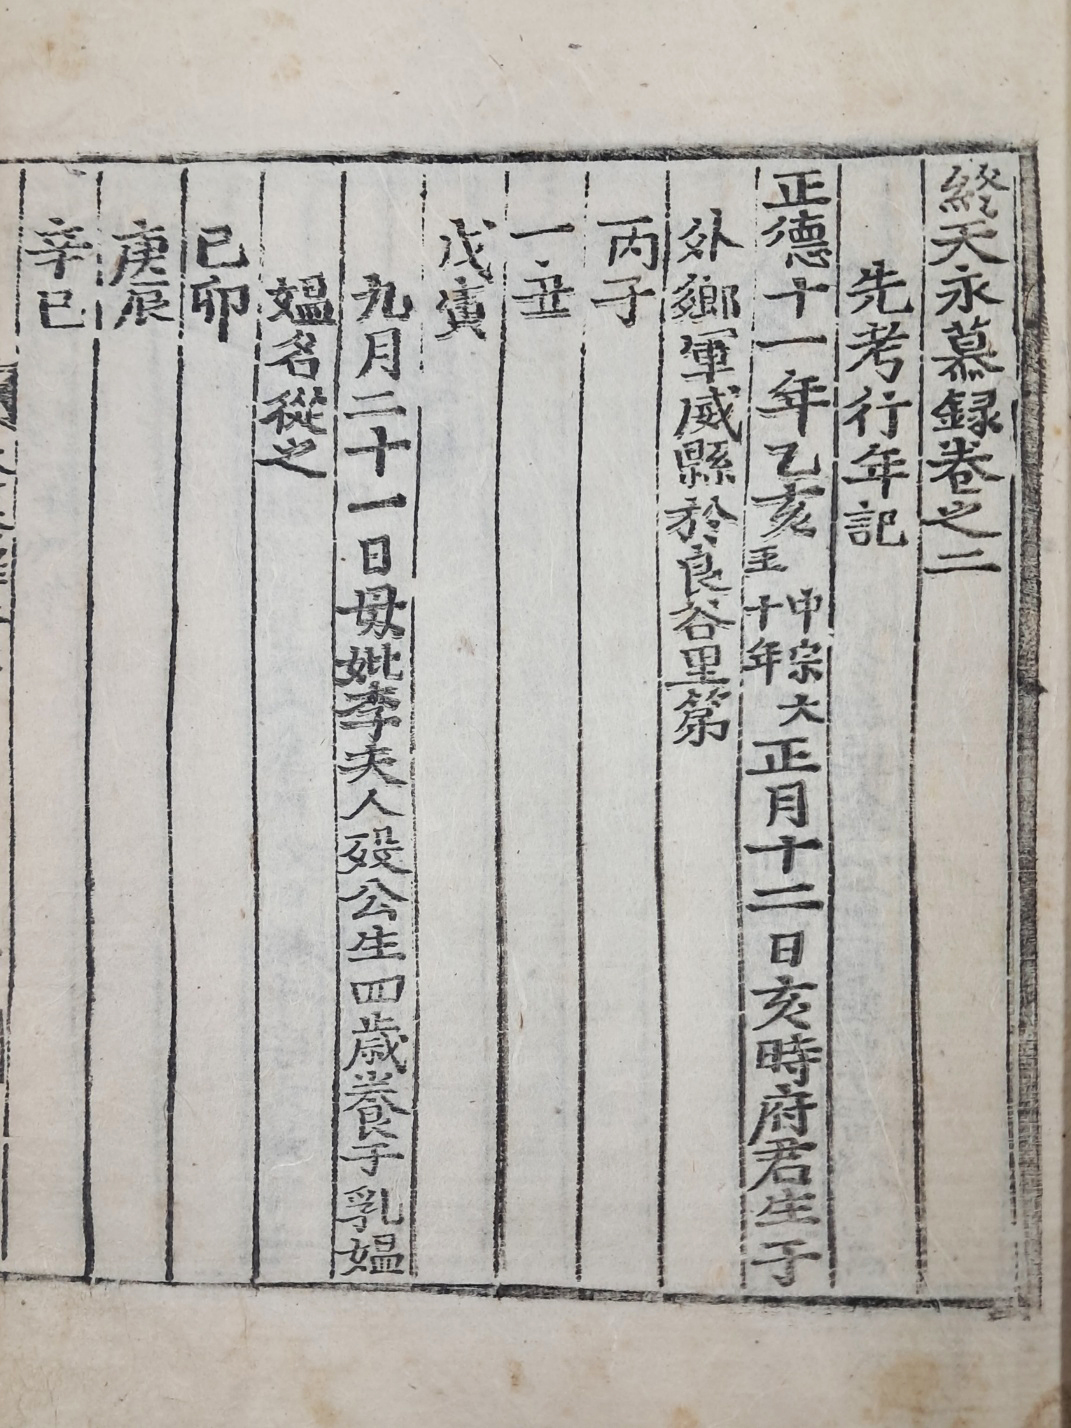 終天永慕録卷之二
先考行年記
正德十一年乙亥中宗大王十年正月十二日亥時府君生于
外鄉軍威縣於良谷里第
丙子
一丑
戊寅
九月二十一日母妣李夫人歿公生四歲養于乳媼
媼名從之
己卯
庚辰
辛巳